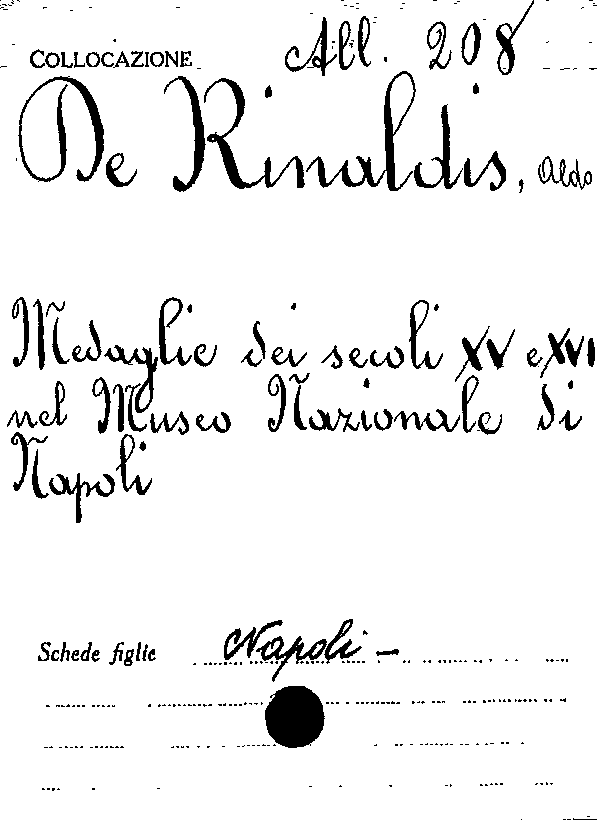 COLLOCAZIONE All. 208
De Rinaldis, Aldo
Medaglie dei secoli XV e XVI
nel Museo Nazionale di
Napoli
Schede figlie Napoli -